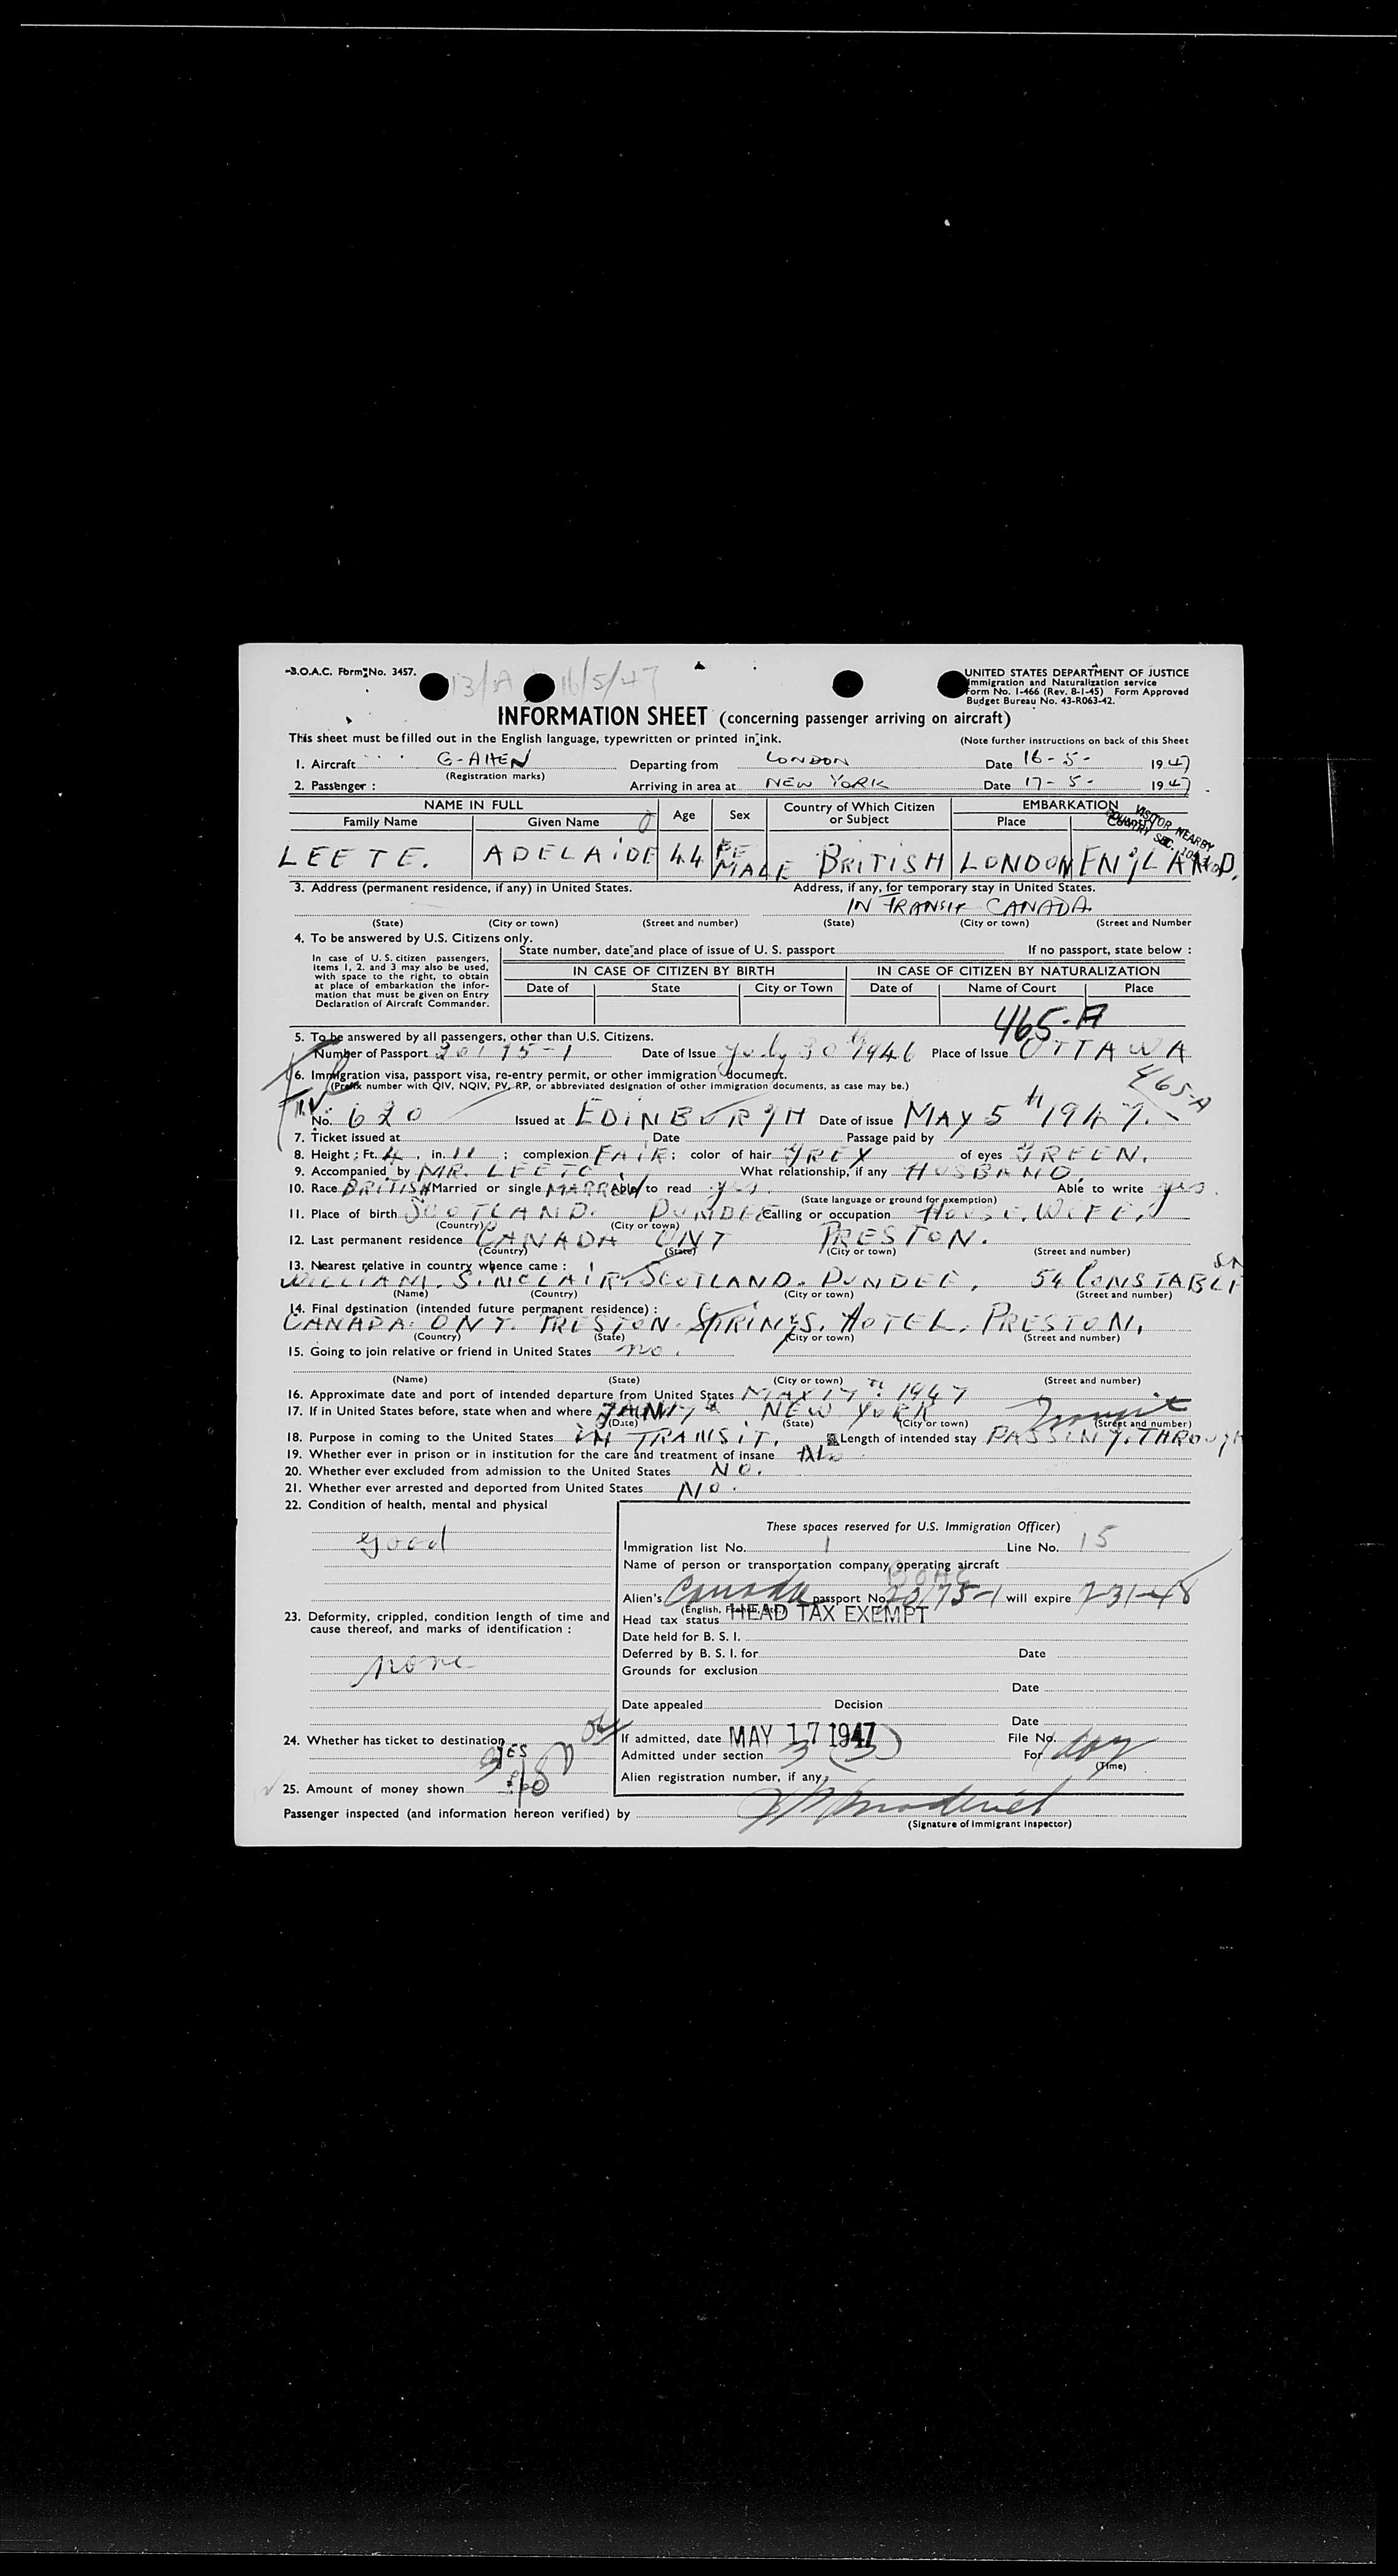 B.O.A.C. Form No. 3457.
13/A 16/5/47
UNITED STATES DEPARTMENT OF JUSTICE
Immigration and Naturalization service
Form No. 1-466 (Rev. 8-1-45) Form Approved
Budget Bureau No. 43-R063-42.
INFORMATION SHEET (concerning passenger arriving on aircraft)
This sheet must be filled out in the English language, typewritten or printed in ink.
(Note further instructions on back of this Sheet
1. Aircraft G-AHEN Departing from LONDON Date 16-5- 1947
(Registration marks)
2. Passenger : Arriving in area at NEW YORK Date 17-5- 1947
NAME IN FULL Age Sex Country of Which Citizen or Subject EMBARKATION
Family Name Given Name Place Country
VISITOR NEARBY
COUNTRY SEC.
LEETE. ADELAIDE 44 FEMALE BRITISH LONDON ENGLAND.
3. Address (permanent residence, if any) in United States. Address, if any, for temporary stay in United States.
IN TRANSIT CANADA
(State) (City or town) (Street and number) (State) (City or town) (Street and Number
4. To be answered by U.S. Citizens only.
In case of U.S. citizen passengers, items 1, 2, and 3 may also be used, with space to the right, to obtain at place of embarkation the information that must be given on Entry Declaration of Aircraft Commander.
State number, date and place of issue of U. S. passport If no passport, state below :
IN CASE OF CITIZEN BY BIRTH IN CASE OF CITIZEN BY NATURALIZATION
Date of State City or Town Date of Name of Court Place
465-A
5. To be answered by all passengers, other than U.S. Citizens.
Number of Passport 20175-1 Date of Issue July 30th 1946 Place of Issue OTTAWA
6. Immigration visa, passport visa, re-entry permit, or other immigration document.
(Prefix number with QIV, NQIV, PV, RP, or abbreviated designation of other immigration documents, as case may be.)
465-A
No. 620 Issued at EDINBURGH Date of issue MAY 5th 1947.
7. Ticket issued at Date Passage paid by
8. Height : Ft. 4 . in. 11 ; complexion FAIR; color of hair GREY of eyes GREEN.
9. Accompanied by MR. LEETE What relationship, if any HUSBAND.
10. Race BRITISH Married or single MARRIED Able to read yes. Able to write yes.
(State language or ground for exemption)
11. Place of birth SCOTLAND. DUNDEE Calling or occupation HOUSE. WIFE.
(Country) (City or town)
12. Last permanent residence CANADA ONT PRESTON.
(Country) (State) (City or town) (Street and number)
13. Nearest relative in country whence came :
WILLIAM. SINCLAIR. SCOTLAND. DUNDEE, 54 CONSTABLE
(Name) (Country) (City or town) (Street and number)
14. Final destination (intended future permanent residence) :
CANADA. ONT. PRESTON. SPRINGS. HOTEL. PRESTON.
(Country) (State) (City or town) (Street and number)
15. Going to join relative or friend in United States no.
(Name) (State) (City or town) (Street and number)
16. Approximate date and port of intended departure from United States MAY 17th 1947
17. If in United States before, state when and where NEW YORK
(Date) (State) (City or town) (Street and number)
18. Purpose in coming to the United States IN TRANSIT. Length of intended stay PASSING. THROUGH
19. Whether ever in prison or in institution for the care and treatment of insane No
20. Whether ever excluded from admission to the United States NO.
21. Whether ever arrested and deported from United States NO.
22. Condition of health, mental and physical
good
These spaces reserved for U.S. Immigration Officer)
Immigration list No. 1 Line No. 15
Name of person or transportation company operating aircraft BOAC
Alien's Canada passport No. 20175-1 will expire 7-31-48
(English, French, etc.)
23. Deformity, crippled, condition length of time and cause thereof, and marks of identification :
none
Head tax status HEAD TAX EXEMPT
Date held for B. S. I.
Deferred by B. S. I. for Date
Grounds for exclusion
Date
Date appealed Decision
Date
24. Whether has ticket to destination YES
If admitted, date MAY 17 1947 File No.
Admitted under section 3 (3) For 1 day
(Time)
Alien registration number, if any,
25. Amount of money shown
Passenger inspected (and information hereon verified) by
(Signature of Immigrant Inspector)